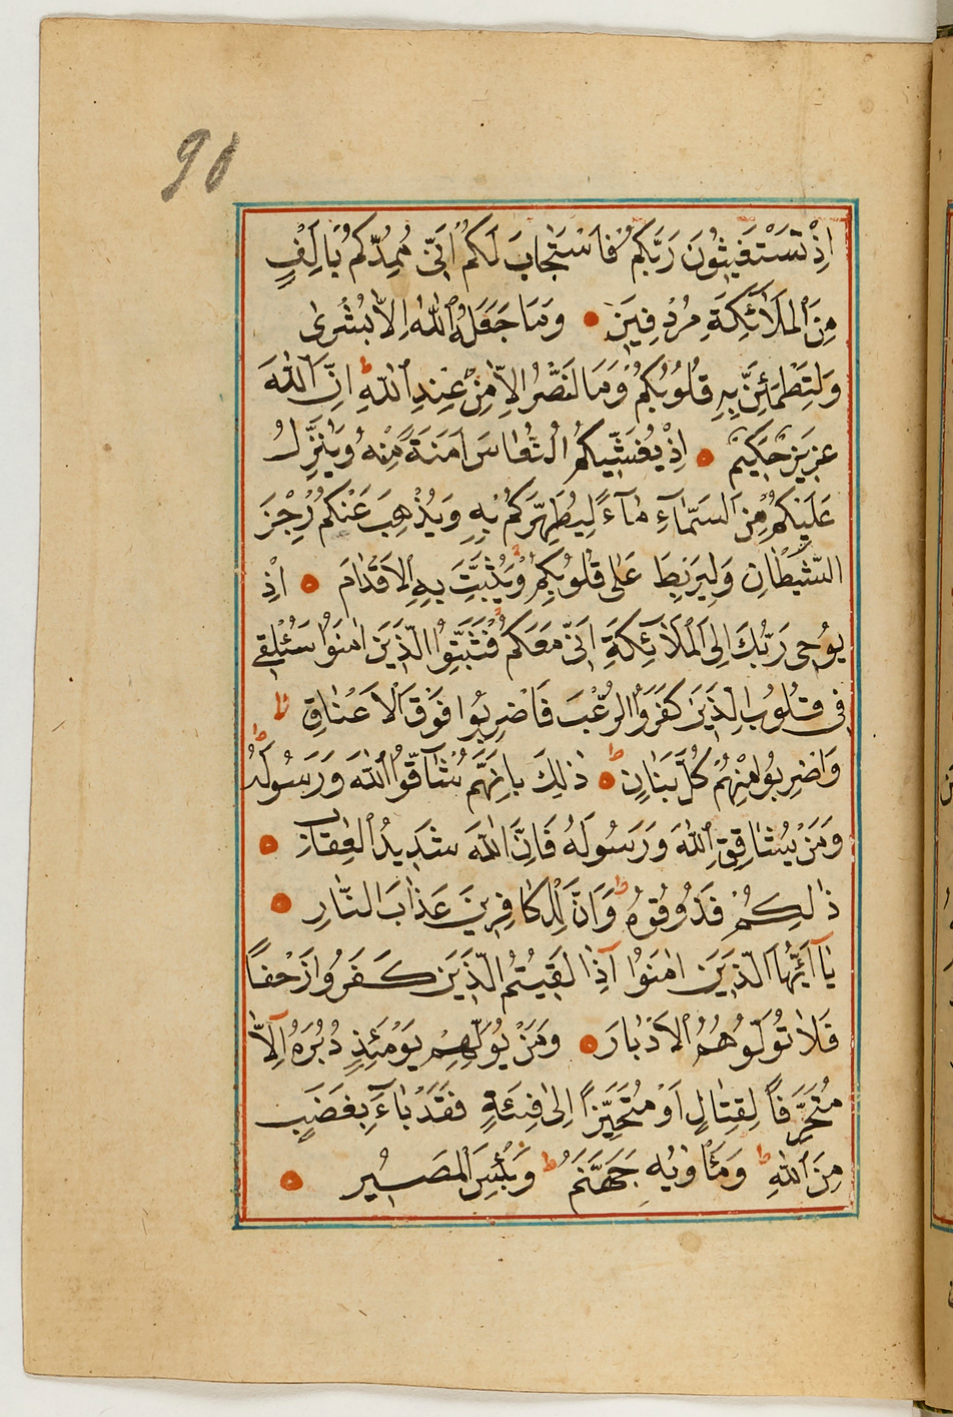 90
اِذْ تَسْتَغِيثُونَ رَبَّكُمْ فَاسْتَجَابَ لَكُمْ اَنِّى مُمِدُّكُمْ بِاَلْفٍ
مِنَ الْمَلَائِكَةِ مُرْدِفِينَ وَمَا جَعَلَهُ اللّٰهُ اِلَّا بُشْرٰى
وَلِتَطْمَئِنَّ بِهِ قُلُوبُكُمْ وَمَا النَّصْرُ اِلَّا مِنْ عِنْدِ اللّٰهِ ط اِنَّ اللّٰهَ
عَزِيزٌ حَكِيمٌ اِذْ يُغَشِّيكُمُ النُّعَاسَ اَمَنَةً مِنْهُ وَيُنَزِّلُ
عَلَيْكُمْ مِنَ السَّمَاءِ مَاءً لِيُطَهِّرَكُمْ بِهِ وَيُذْهِبَ عَنْكُمْ رِجْزَ
الشَّيْطَانِ وَلِيَرْبِطَ عَلٰى قُلُوبِكُمْ وَيُثَبِّتَ بِهِ الْاَقْدَامَ اِذْ
يُوحِى رَبُّكَ اِلَى الْمَلَائِكَةِ اَنِّى مَعَكُمْ فَثَبِّتُوا الَّذِينَ اٰمَنُوا سَاُلْقِى
فِى قُلُوبِ الَّذِينَ كَفَرُوا الرُّعْبَ فَاضْرِبُوا فَوْقَ الْاَعْنَاقِ ط
وَاضْرِبُوا مِنْهُمْ كُلَّ بَنَانٍ ط ذٰلِكَ بِاَنَّهُمْ شَاقُّوا اللّٰهَ وَرَسُولَهُ ط
وَمَنْ يُشَاقِقِ اللّٰهَ وَرَسُولَهُ فَاِنَّ اللّٰهَ شَدِيدُ الْعِقَابِ
ذٰلِكُمْ فَذُوقُوهُ ط وَاَنَّ لِلْكَافِرِينَ عَذَابَ النَّارِ
يَا اَيُّهَا الَّذِينَ اٰمَنُوا اِذَا لَقِيتُمُ الَّذِينَ كَفَرُوا زَحْفًا
فَلَا تُوَلُّوهُمُ الْاَدْبَارَ وَمَنْ يُوَلِّهِمْ يَوْمَئِذٍ دُبُرَهُ اِلَّا
مُتَحَرِّفًا لِقِتَالٍ اَوْ مُتَحَيِّزًا اِلٰى فِئَةٍ فَقَدْ بَاءَ بِغَضَبٍ
مِنَ اللّٰهِ ط وَمَاْوٰيهُ جَهَنَّمُ ط وَبِئْسَ الْمَصِيرُ